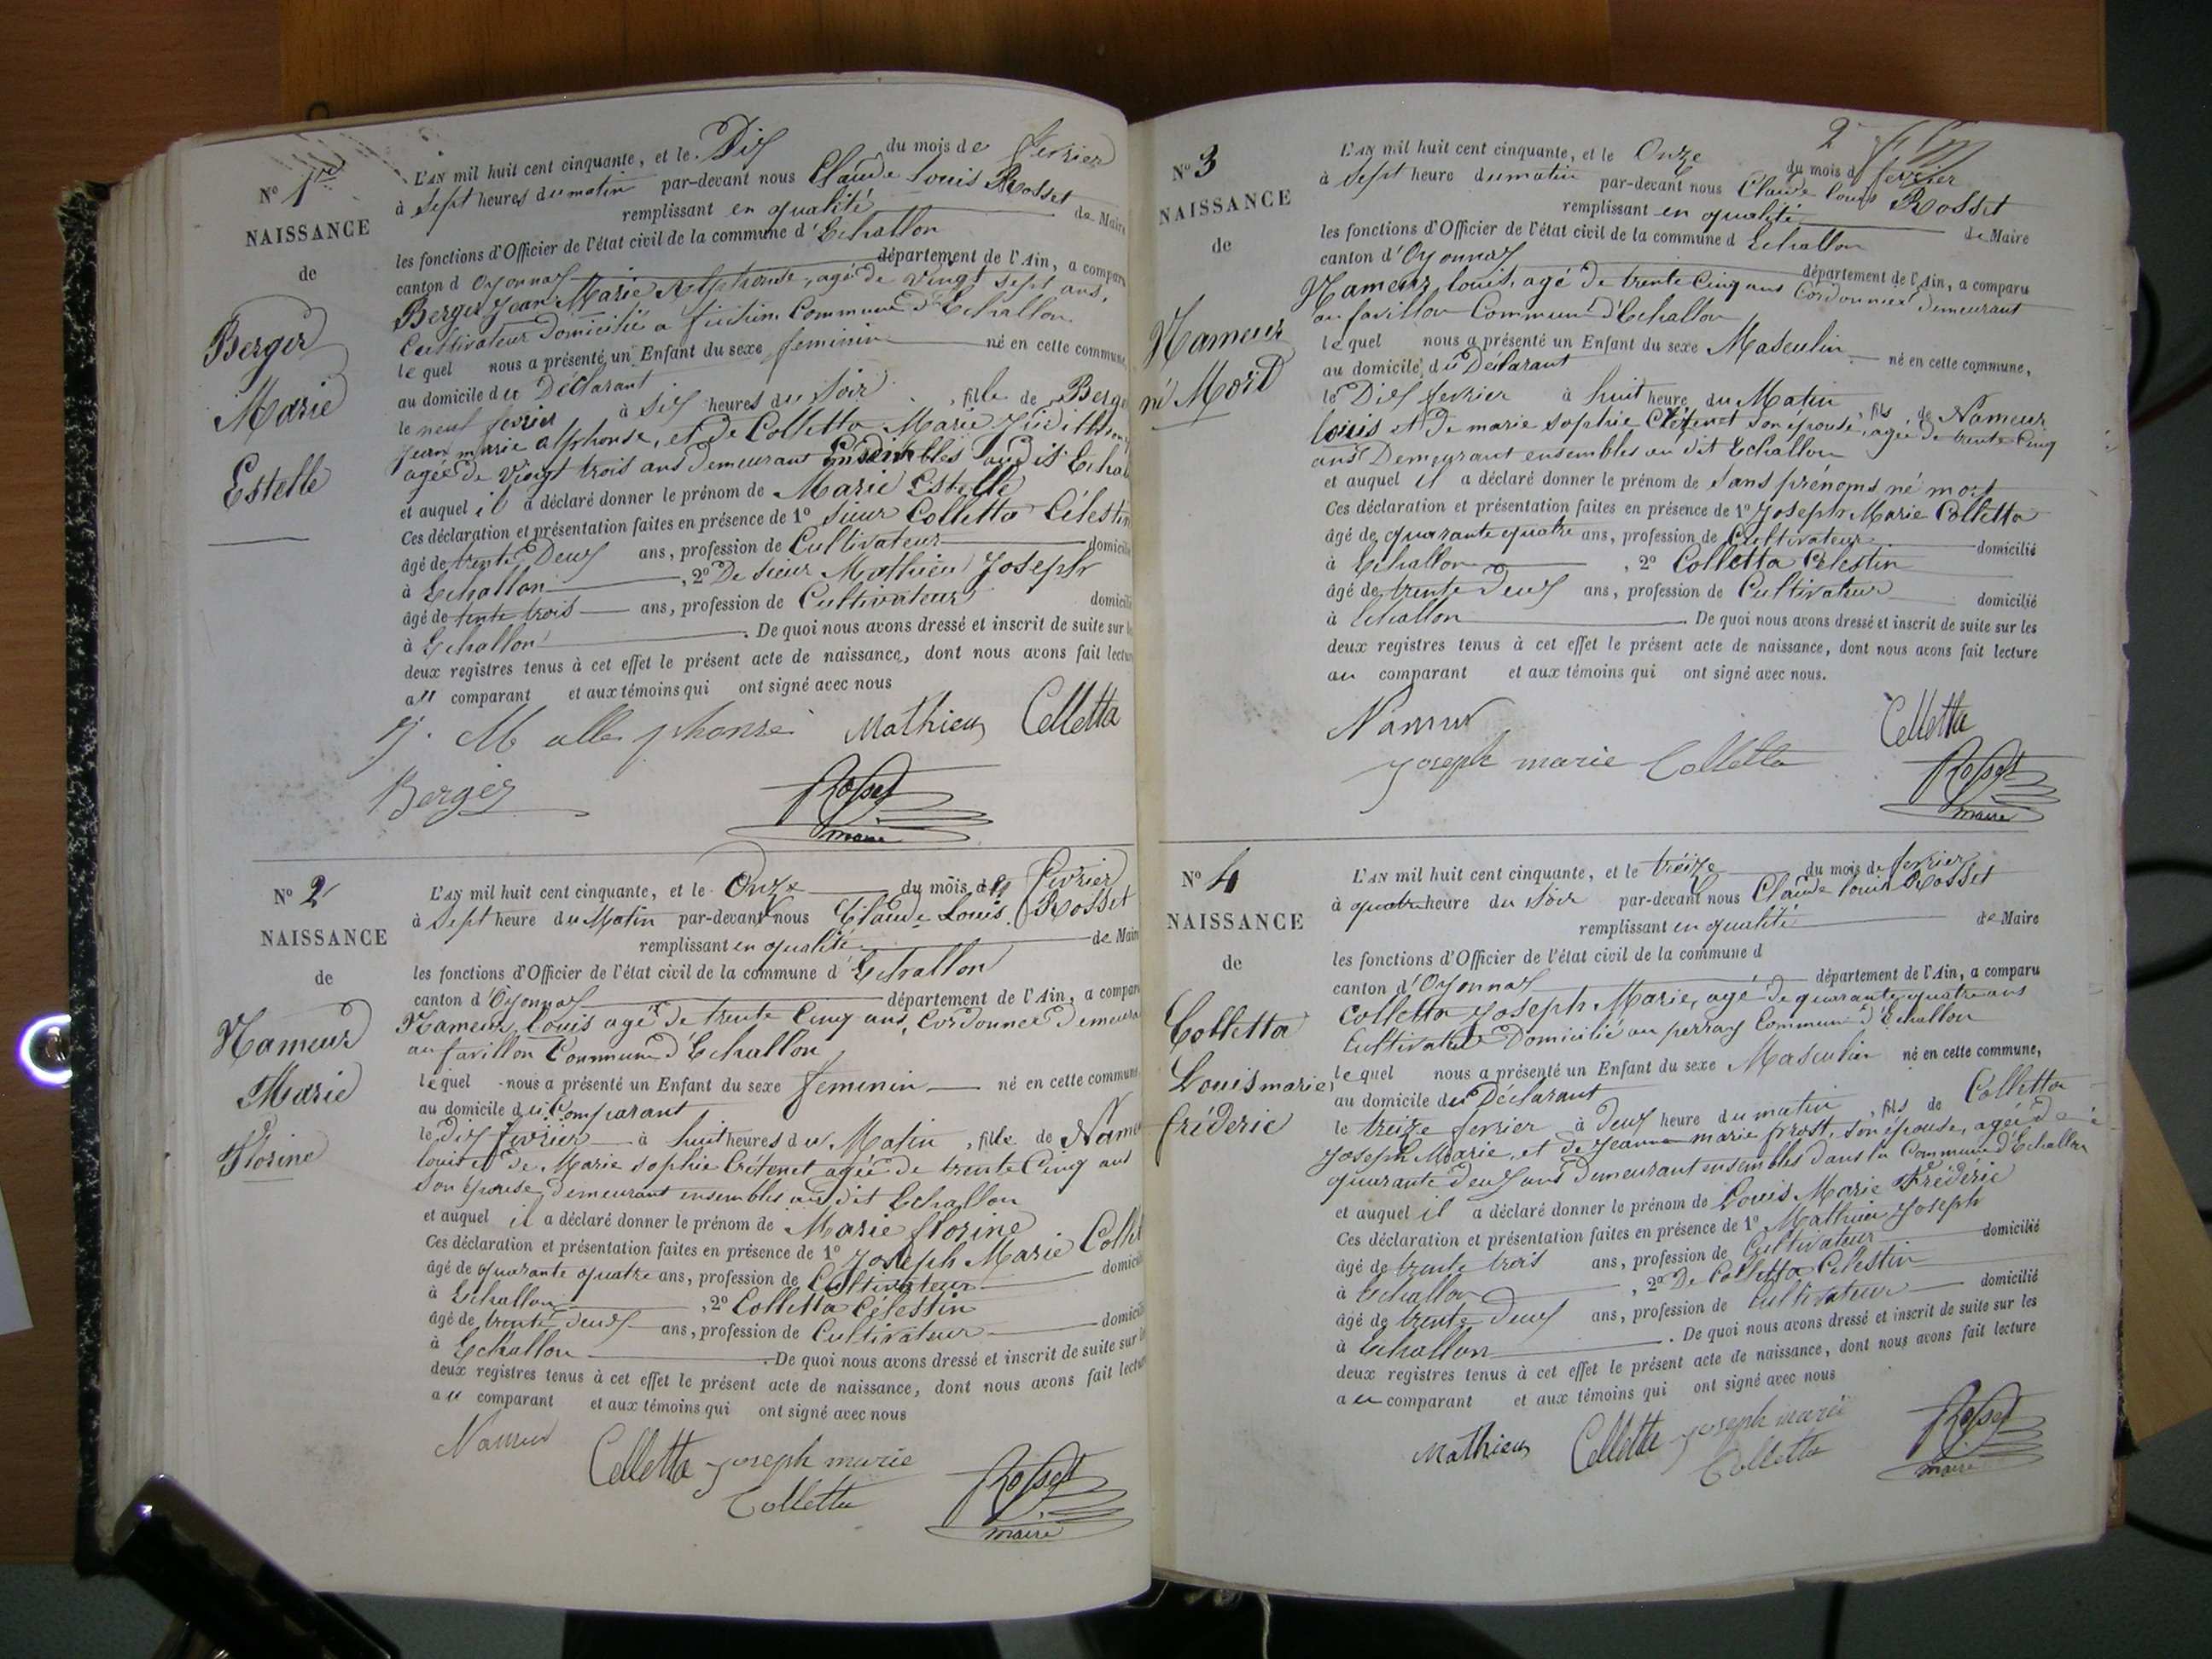 N° 1er
NAISSANCE
de
Berger
Marie
Estelle
L'AN mil huit cent cinquante, et le Dix du mois de fevrier
à Sept heures du matin par-devant nous Claude Louis Rosset
remplissant en qualité de Maire
les fonctions d'Officier de l'état civil de la commune d'Echallon
canton d'Oyonnax département de l'Ain, a comparu
Berger Jean Marie Alphonse, agé de vingt sept ans,
Cultivateur domicilié a Commune d'Echallon
lequel nous a présenté un Enfant du sexe feminin né en cette commune,
au domicile du Déclarant
le neuf fevrier à six heures du Soir, fille de Berger
jean marie alphonse, et de Colletta Marie
agée de vingt trois ans demeurant Ensembles audit Echallon
et auquel il a déclaré donner le prénom de Marie Estelle
Ces déclaration et présentation faites en présence de 1° Sieur Colletta Célestin
âgé de trente Deux ans, profession de Cultivateur domicilié
à Echallon, 2° De sieur Mathieu Joseph
âgé de tente trois ans, profession de Cultivateur domicilié
à Echallon. De quoi nous avons dressé et inscrit de suite sur les
deux registres tenus à cet effet le présent acte de naissance, dont nous avons fait lecture
au comparant et aux témoins qui ont signé avec nous
j. M allephonse Mathieu Colletta
Berger Rosset
maire
N° 2
NAISSANCE
de
Nameur
Marie
Florine
L'AN mil huit cent cinquante, et le Onze du mois de fevrier
à Sept heure du Matin par-devant nous Claude Louis Rosset
remplissant en qualité de Maire
les fonctions d'Officier de l'état civil de la commune d'Echallon
canton d'Oyonnax département de l'Ain, a comparu
Nameur, Louis agé de trente Cinq ans, Cordonnee demeurant
au favillon Commune d'Echallon
lequel nous a présenté un Enfant du sexe feminin né en cette commune
au domicile du Comparant
le dix fevrier à huit heures du Matin, fille de Nameur
louis et de Marie sophie Crétenet agée de trente Cinq ans
son épouse demeurant ensembles au dit Echallon
et auquel il a déclaré donner le prénom de Marie florine
Ces déclaration et présentation faites en présence de 1° Joseph Marie Collet
âgé de quarante quatre ans, profession de Cultivateur domicilié
à Echallon, 2° Colletta Célestin
âgé de trente deux ans, profession de Cultivateur domicilié
à Echallon. De quoi nous avons dressé et inscrit de suite sur les
deux registres tenus à cet effet le présent acte de naissance, dont nous avons fait lecture
au comparant et aux témoins qui ont signé avec nous
Nameur Colletta joseph marie
Colletta Rosset
maire
2
N° 3
NAISSANCE
de
Nameur
né Mort
L'AN mil huit cent cinquante, et le Onze du mois de fevrier
à Sept heure du matin par-devant nous Claude louis Rosset
remplissant en qualité de Maire
les fonctions d'Officier de l'état civil de la commune d Echallon
canton d'Oyonnax département de l'Ain, a comparu
Nameur, louis, agé de trente Cinq ans Cordonnier demeurant
au favillon Commune d'Echallon
lequel nous a présenté un Enfant du sexe Masculin né en cette commune,
au domicile du Déclarant
le Dix fevrier à huit heure du Matin, fils de Nameur
louis et De marie sophie Crétenet son épouse, agée de trente Cinq
ans Demeurant ensembles au dit Echallon
et auquel il a déclaré donner le prénom de Sans prénoms, né mort
Ces déclaration et présentation faites en présence de 1° Joseph Marie Colletta
âgé de quarante quatre ans, profession de Cultivateur domicilié
à Echallon, 2° Colletta Célestin
âgé de trente deux ans, profession de Cultivateur domicilié
à Echallon. De quoi nous avons dressé et inscrit de suite sur les
deux registres tenus à cet effet le présent acte de naissance, dont nous avons fait lecture
au comparant et aux témoins qui ont signé avec nous.
Nameur Colletta
joseph marie Colletta Rosset
maire
N° 4
NAISSANCE
de
Colletta
Louis marie
fréderic
L'AN mil huit cent cinquante, et le treize du mois de fevrier
à quatre heure du Soir par-devant nous Claude louis Rosset
remplissant en qualité de Maire
les fonctions d'Officier de l'état civil de la commune d
canton d'Oyonnax département de l'Ain, a comparu
Colletta Joseph Marie, agé de quarante quatre ans
Cultivateur Domicilié au perray Commune d'Echallon
lequel nous a présenté un Enfant du sexe Masculin né en cette commune,
au domicile du Déclarant
le treize fevrier à deux heure du matin, fils de Colletta
Joseph Marie, et de jeanne marie prost, son épouse, agée de
quarante deux ans demeurant ensembles dans la Commune d'Echallon
et auquel il a déclaré donner le prénom de Louis Marie Fréderic
Ces déclaration et présentation faites en présence de 1° Mathieu Joseph
âgé de trente trois ans, profession de Cultivateur domicilié
à Echallon, 2° De Colletta Celestin
âgé de trente deux ans, profession de Cultivateur domicilié
à Echallon. De quoi nous avons dressé et inscrit de suite sur les
deux registres tenus à cet effet le présent acte de naissance, dont nous avons fait lecture
au comparant et aux témoins qui ont signé avec nous
Mathieu Colletta joseph marie
Colletta Rosset
maire